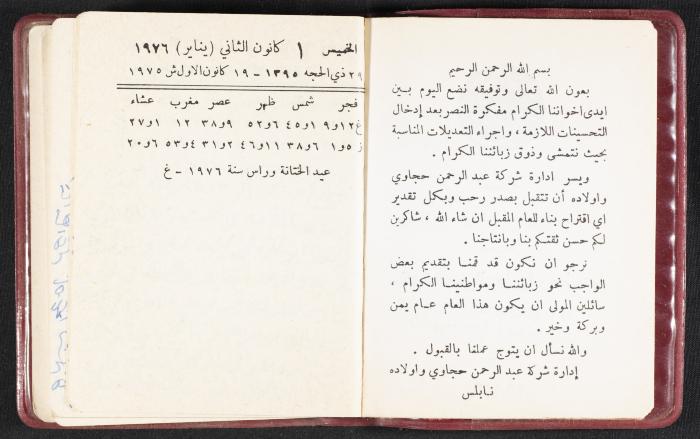 بسم الله الرحمن الرحيم
بعون الله تعالى وتوفيقه نضع اليوم بين
ايدى اخواننا الكرام مفكرة النصر بعد إدخال
التحسينات اللازمة ، واجراء التعديلات المناسبة
بحيث نتمشى وذوق زبائننا الكرام .
ويسر ادارة شركة عبد الرحمن حجاوي
واولاده أن تتقبل بصدر رحب وبكل تقدير
اي اقتراح بناء للعام المقبل ان شاء الله ، شاكرين
لكم حسن ثقتكم بنا وبانتاجنا .
نرجو ان نكون قد قمنا بتقديم بعض
الواجب نحو زبائننا ومواطنينا الكرام ،
سائلين المولى ان يكون هذا العام عام يمن
وبركة وخير .
والله نسأل ان يتوج عملنا بالقبول .
إدارة شركة عبد الرحمن حجاوي واولاده
نابلس
الخميس ١ كانون الثاني (يناير) ١٩٧٦
٢٩ ذي الحجه ١٣٩٥ - ١٩ كانون الاول ش ١٩٧٥
فجر شمس ظهر عصر مغرب عشاء
غ ١٢و٩ ١و٤٥ ٦و٥٢ ٩و٣٨ ١٢ ١و٢٧
ز ٥و١ ٦و٣٨ ١١و٤٦ ٢و٣١ ٤و٥٣ ٦و٢٠
عيد الختانة وراس سنة ١٩٧٦ - غ